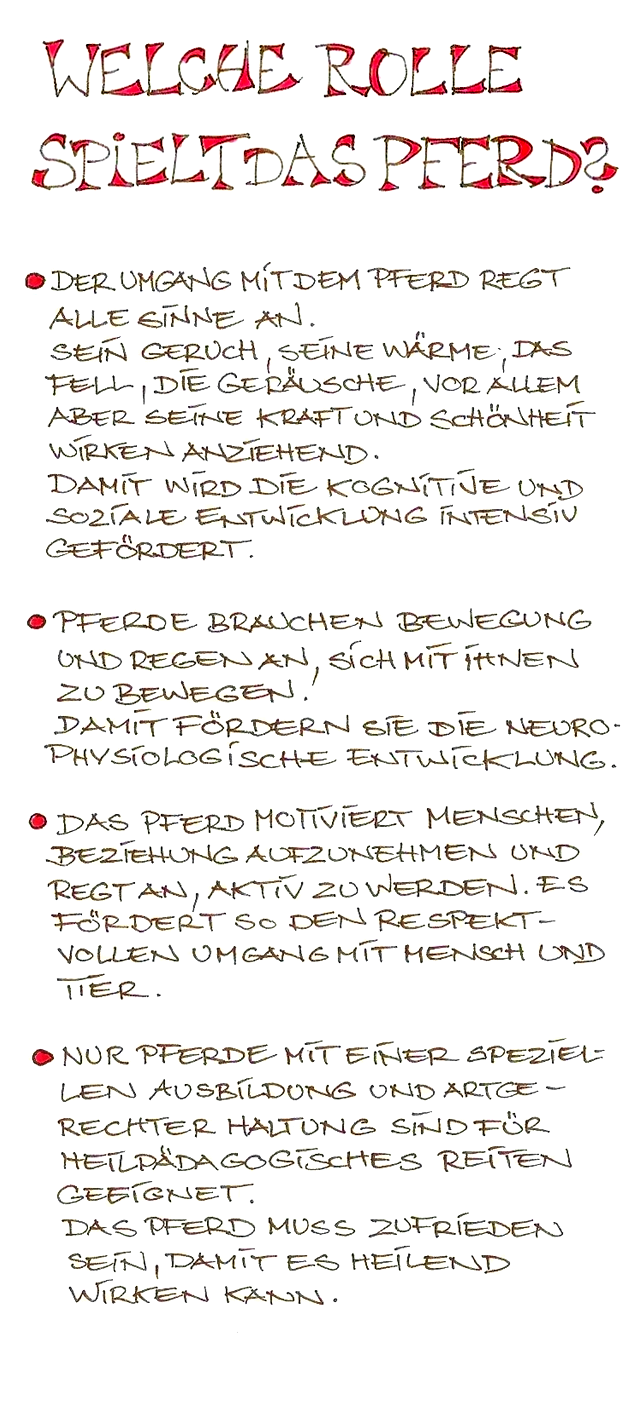 WELCHE ROLLE
SPIELT DAS PFERD?
• DER UMGANG MIT DEM PFERD REGT
ALLE SINNE AN.
SEIN GERUCH, SEINE WÄRME, DAS
FELL, DIE GERÄUSCHE, VOR ALLEM
ABER SEINE KRAFT UND SCHÖNHEIT
WIRKEN ANZIEHEND.
DAMIT WIRD DIE KOGNITIVE UND
SOZIALE ENTWICKLUNG INTENSIV
GEFÖRDERT.
• PFERDE BRAUCHEN BEWEGUNG
UND REGEN AN, SICH MIT IHNEN
ZU BEWEGEN.
DAMIT FÖRDERN SIE DIE NEURO-
PHYSIOLOGISCHE ENTWICKLUNG.
• DAS PFERD MOTIVIERT MENSCHEN,
BEZIEHUNG AUFZUNEHMEN UND
REGT AN, AKTIV ZU WERDEN. ES
FÖRDERT SO DEN RESPEKT-
VOLLEN UMGANG MIT MENSCH UND
TIER.
• NUR PFERDE MIT EINER SPEZIEL-
LEN AUSBILDUNG UND ARTGE-
RECHTER HALTUNG SIND FÜR
HEILPÄDAGOGISCHES REITEN
GEEIGNET.
DAS PFERD MUSS ZUFRIEDEN
SEIN, DAMIT ES HEILEND
WIRKEN KANN.